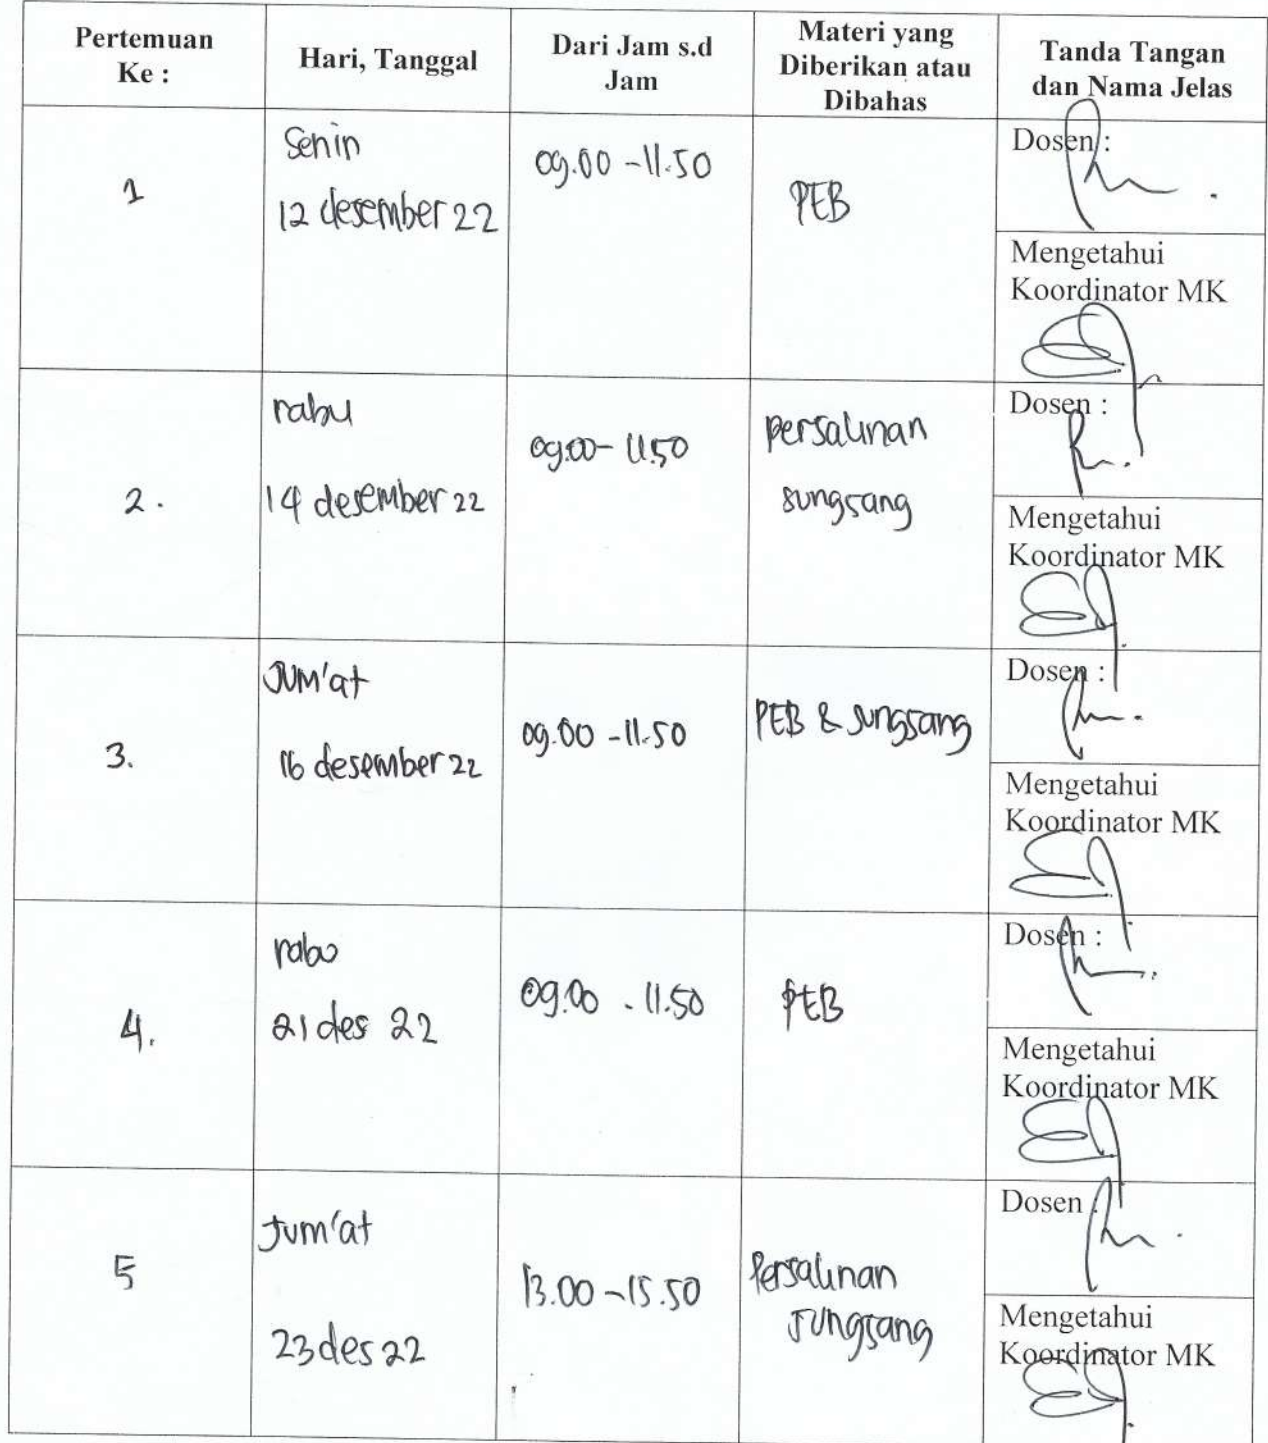 Pertemuan
Ke :
Hari, Tanggal
Dari Jam s.d
Jam
Materi yang
Diberikan atau
Dibahas
Tanda Tangan
dan Nama Jelas
1
Senin
12 desember 22
09.00 - 11.50
PEB
Dosen :
Mengetahui
Koordinator MK
2.
rabu
14 desember 22
09.00 - 11.50
persalinan
sungsang
Dosen :
Mengetahui
Koordinator MK
3.
Jum'at
16 desember 22
09.00 - 11.50
PEB & sungsang
Dosen :
Mengetahui
Koordinator MK
4.
rabu
21 des 22
09.00 - 11.50
PEB
Dosen :
Mengetahui
Koordinator MK
5
Jum'at
23 des 22
13.00 - 15.50
Persalinan
sungsang
Dosen :
Mengetahui
Koordinator MK